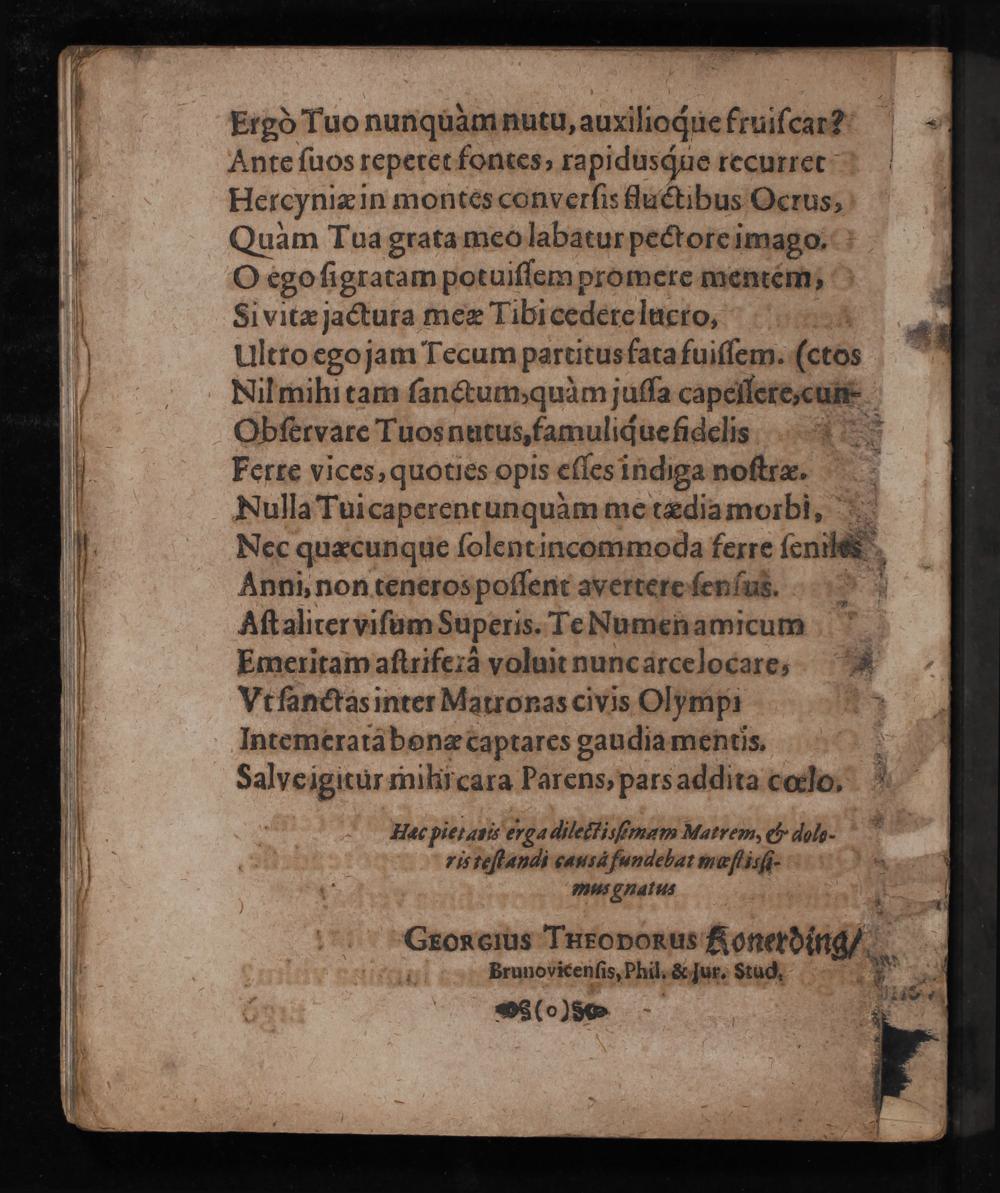 Ergò Tuo nunquàm nutu, auxilioq́ue fruiſcar?
Ante ſuos repetet fontes, rapidusq́ue recurret
Hercyniæ in montes converſis fluctibus Ocrus,
Quàm Tua grata meo labatur pectore imago.
O ego ſi gratam potuiſſem promere mentem,
Si vitæ jactura meæ Tibi cedere lucro,
Ultro ego jam Tecum partitus fata fuiſſem. (ctos
Nil mihi tam ſanctum, quàm juſſa capeſſere, cun-
Obſervare Tuos nutus, famuliq́ue fidelis
Ferre vices, quoties opis eſſes indiga noſtræ.
Nulla Tui caperent unquàm me tædia morbi,
Nec quæcunque ſolent incommoda ferre ſeniles
Anni, non teneros poſſent avertere ſenſus.
Aſt aliter viſum Superis. Te Numen amicum
Emeritam aſtriferâ voluit nunc arce locare,
Vt ſanctas inter Matronas civis Olympi
Intemerata bonæ captares gaudia mentis.
Salve igitur mihi cara Parens, pars addita cœlo.
Hac pietatis erga dilectiſſimam Matrem, & dolo-
ris teſtandi causâ fundebat mœſtiſſi-
mus gnatus
GEORGIUS THEODORUS Konerding/
Brunovicenſis, Phil. & Jur. Stud.
§(o)§